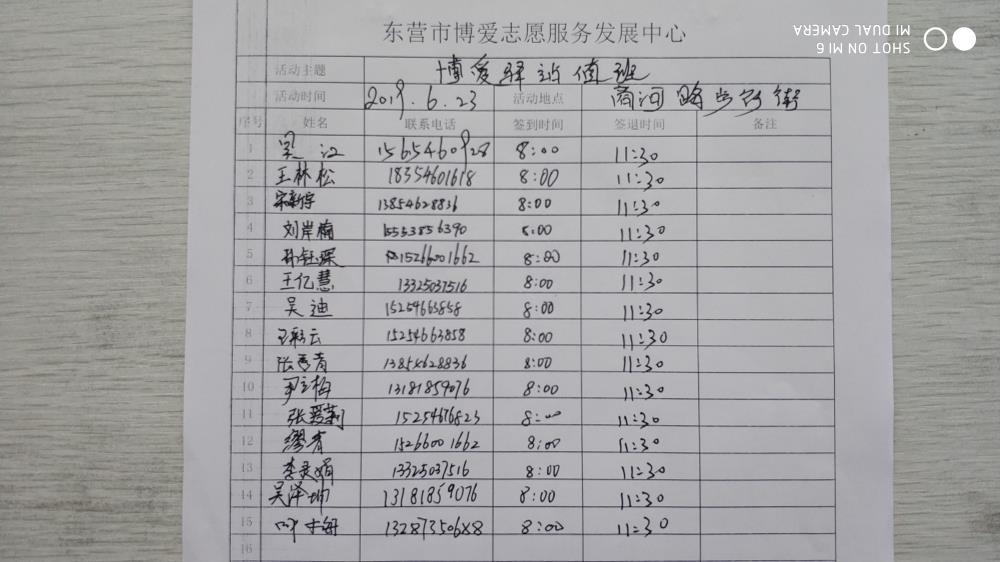 东营市博爱志愿服务发展中心
SHOT ON MI 6
MI DUAL CAMERA
活动主题 博爱驿站值班
活动时间 2019.6.23 活动地点 商河路步行街
序号 姓名 联系电话 签到时间 签退时间 备注
1 吴江 15654609128 8:00 11:30
2 王林松 18354601618 8:00 11:30
3 宋新宇 13854628836 8:00 11:30
4 刘岸楠 15553856390 8:00 11:30
5 孙钰琛 15266001662 8:00 11:30
6 王亿慧 13325037516 8:00 11:30
7 吴迪 15254663858 8:00 11:30
8 王彩云 15254663858 8:00 11:30
9 张秀青 13854628836 8:00 11:30
10 尹立梅 13181859076 8:00 11:30
11 张爱莉 15254676823 8:00 11:30
12 缪青 15266001662 8:00 11:30
13 李灵娟 13325037516 8:00 11:30
14 吴泽坤 13181859076 8:00 11:30
15 8:00 11:30
16